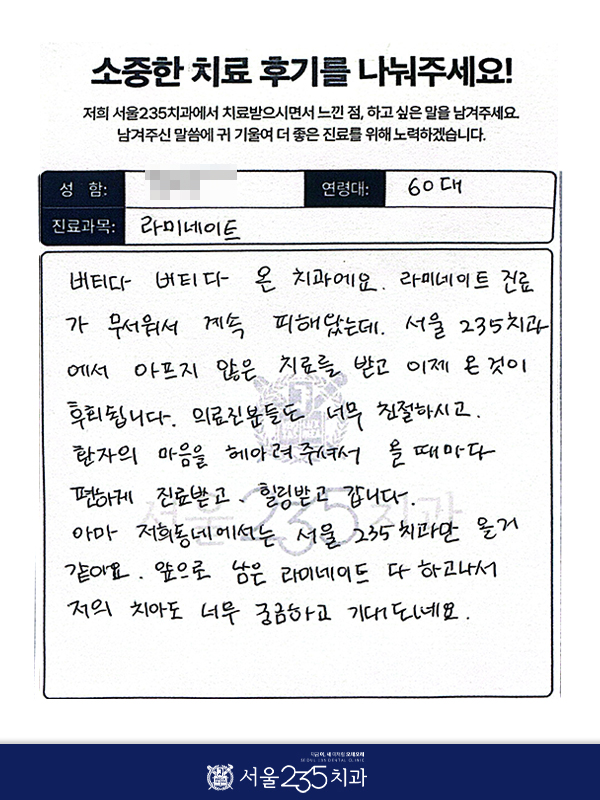 소중한 치료 후기를 나눠주세요!
저희 서울235치과에서 치료받으시면서 느낀 점, 하고 싶은 말을 남겨주세요.
남겨주신 말씀에 귀 기울여 더 좋은 진료를 위해 노력하겠습니다.
성 함: 연령대: 60대
진료과목: 라미네이트
버티다 버티다 온 치과에요. 라미네이트 진료
가 무서워서 계속 피해왔는데. 서울 235치과
에서 아프지 않은 치료를 받고 이제 온것이
후회됩니다. 의료진분들도 너무 친절하시고.
환자의 마음을 헤아려주셔서 올때마다
편하게 진료받고. 힐링받고 갑니다.
아마 저희동네에서는 서울 235치과만 올거
같아요. 앞으로 남은 라미네이트 다 하고나서
저의 치아도 너무 궁금하고 기대되네요.
서울235치과
서울235치과